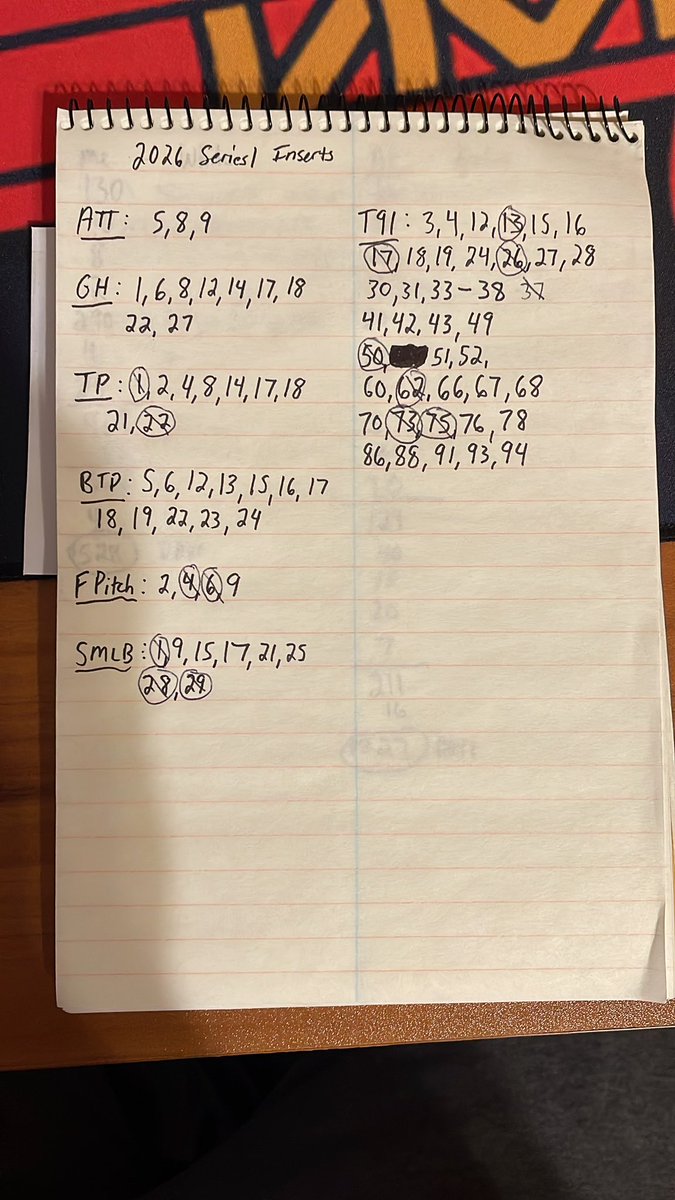 2026 Series 1 Inserts
ATT: 5, 8, 9
GH: 1, 6, 8, 12, 14, 17, 18
22, 27
TP: 1, 2, 4, 8, 14, 17, 18
21, 22
BTP: 5, 6, 12, 13, 15, 16, 17
18, 19, 22, 23, 24
F Pitch: 2, 4, 6, 9
SMLB: 1, 9, 15, 17, 21, 25
28, 29
T91: 3, 4, 12, 13, 15, 16
17, 18, 19, 24, 26, 27, 28
30, 31, 33-38 37
41, 42, 43, 49
50, 51, 52,
60, 62, 66, 67, 68
70, 73, 75, 76, 78
86, 88, 91, 93, 94